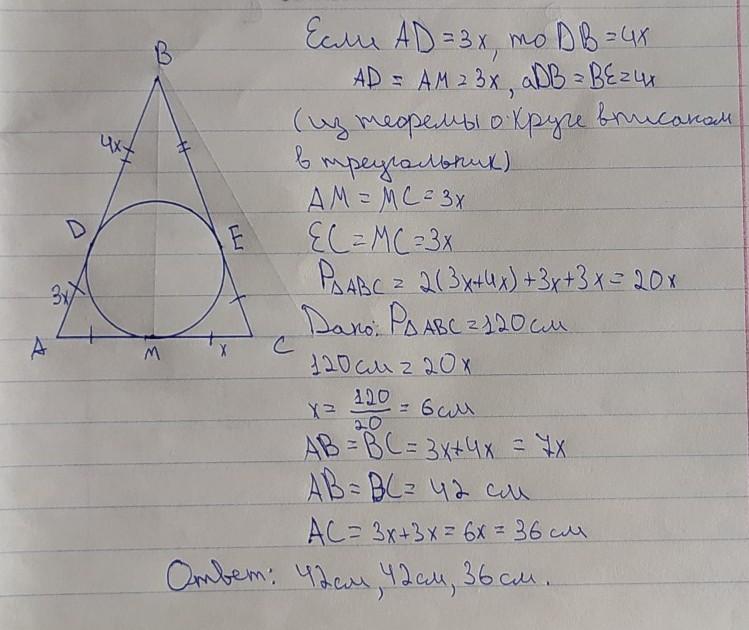 Если AD = 3x, то DB = 4x
AD = AM = 3x, а DB = BE = 4x
(из теоремы о круге вписаном
в треугольник)
AM = MC = 3x
EC = MC = 3x
P△ABC = 2(3x+4x)+3x+3x = 20x
Дано: P△ABC = 120 см
120 см = 20x
x = 120/20 = 6 см
AB = BC = 3x+4x = 7x
AB = BC = 42 см
AC = 3x+3x = 6x = 36 см
Ответ: 42 см, 42 см, 36 см.
B
4x
D
E
3x
A
M
x
C